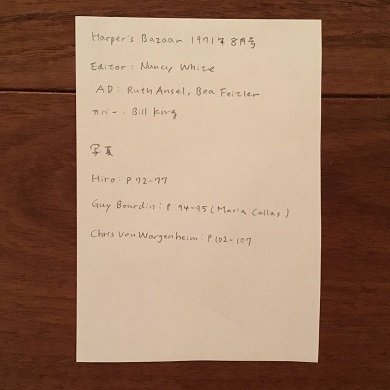 Harper's Bazaar 1971年8月号
Editor: Nancy White
AD: Ruth Ansel, Bea Feitler
カバー: Bill King
写真
Hiro: P.72-77
Guy Bourdin: P. 94-95 (Maria Callas)
Chris Von Wangenheim: P.102-107